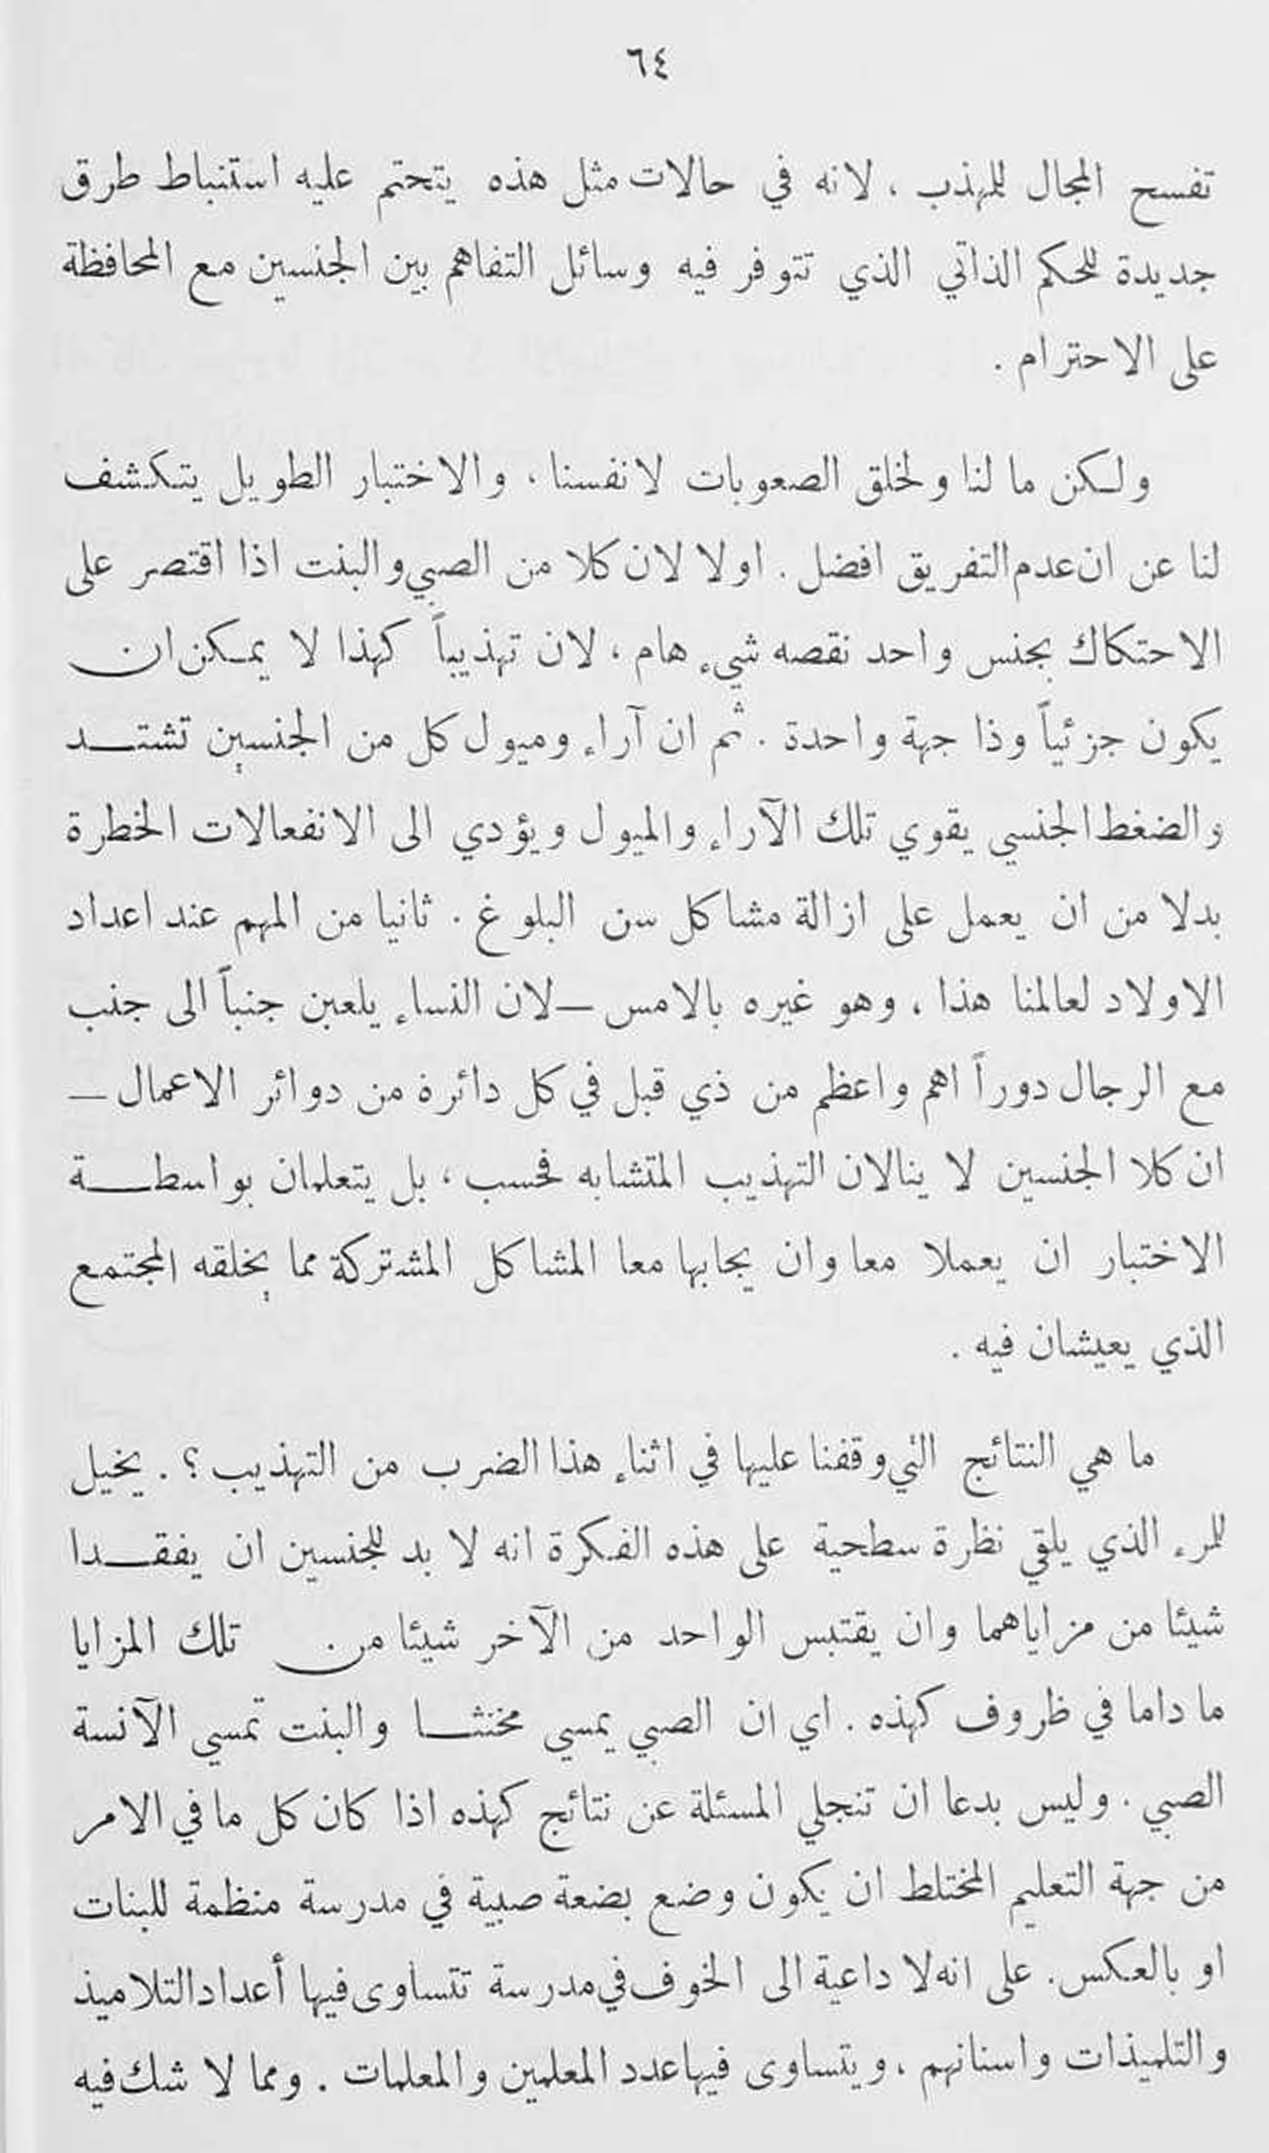 ٦٤
تفسح المجال للمهذب ، لانه في حالات مثل هذه يتحتم عليه استنباط طرق
جديدة للحكم الذاتي الذي تتوفر فيه وسائل التفاهم بين الجنسين مع المحافظة
على الاحترام .
ولكن ما لنا ولخلق الصعوبات لانفسنا ، والاختبار الطويل يتكشف
لنا عن ان عدم التفريق افضل . اولا لان كلا من الصبي والبنت اذا اقتصر على
الاحتكاك بجنس واحد نقصه شيء هام ، لان تهذيباً كهذا لا يمكن ان
يكون جزئياً وذا جهة واحدة . ثم ان آراء وميول كل من الجنسين تشتــد
والضغط الجنسي يقوي تلك الآراء والميول ويؤدي الى الانفعالات الخطرة
بدلا من ان يعمل على ازالة مشاكل سن البلوغ . ثانيا من المهم عند اعداد
الاولاد لعالمنا هذا ، وهو غيره بالامس – لان النساء يلعبن جنباً الى جنب
مع الرجال دوراً اهم واعظم من ذي قبل في كل دائرة من دوائر الاعمال –
ان كلا الجنسين لا ينالان التهذيب المتشابه فحسب ، بل يتعلمان بواسطــة
الاختبار ان يعملا معا وان يجابها معا المشاكل المشتركة مما يخلقه المجتمع
الذي يعيشان فيه .
ما هي النتائج التي وقفنا عليها في اثناء هذا الضرب من التهذيب ؟ . يخيل
للمرء الذي يلقي نظرة سطحية على هذه الفكرة انه لا بد للجنسين ان يفقــدا
شيئا من مزاياهما وان يقتبس الواحد من الآخر شيئا من تلك المزايا
ما داما في ظروف كهذه . اي ان الصبي يمسي مخنثــا والبنت تمسي الآنسة
الصبي . وليس بدعا ان تنجلي المسئلة عن نتائج كهذه اذا كان كل ما في الامر
من جهة التعليم المختلط ان يكون وضع بضعة صبية في مدرسة منظمة للبنات
او بالعكس . على انه لا داعية الى الخوف في مدرسة تتساوى فيها أعداد التلاميذ
والتلميذات واسنانهم ، ويتساوى فيها عدد المعلمين والمعلمات . ومما لا شك فيه